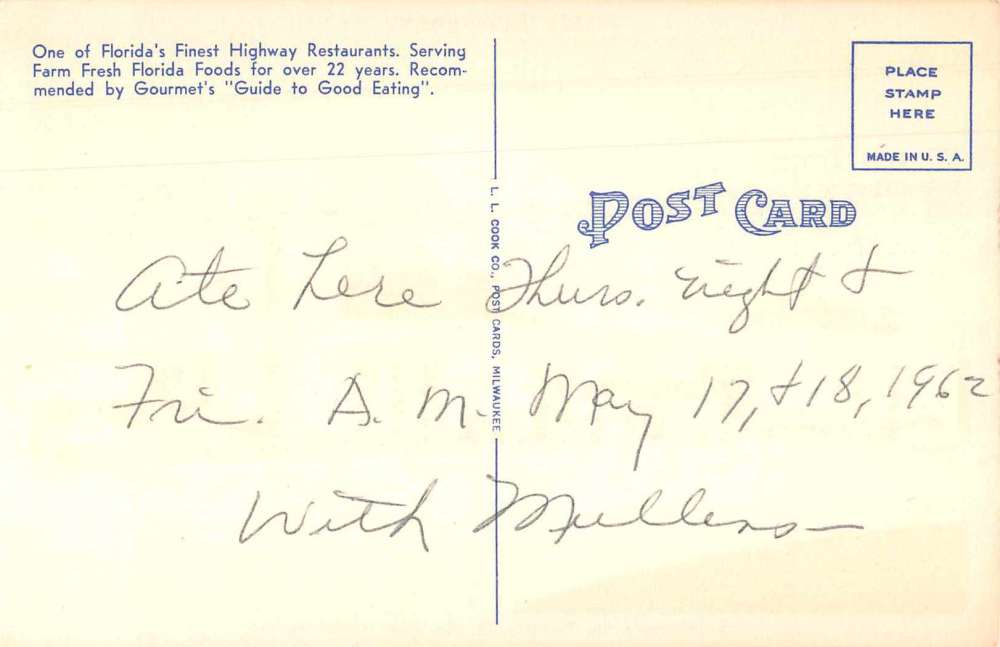 One of Florida's Finest Highway Restaurants. Serving
Farm Fresh Florida Foods for over 22 years. Recom-
mended by Gourmet's "Guide to Good Eating".
PLACE
STAMP
HERE
MADE IN U. S. A.
POST CARD
L. L. COOK CO., POST CARDS, MILWAUKEE
Ate here Thurs. night &
Fri. A. M. May 17, & 18, 1962
With Mullens